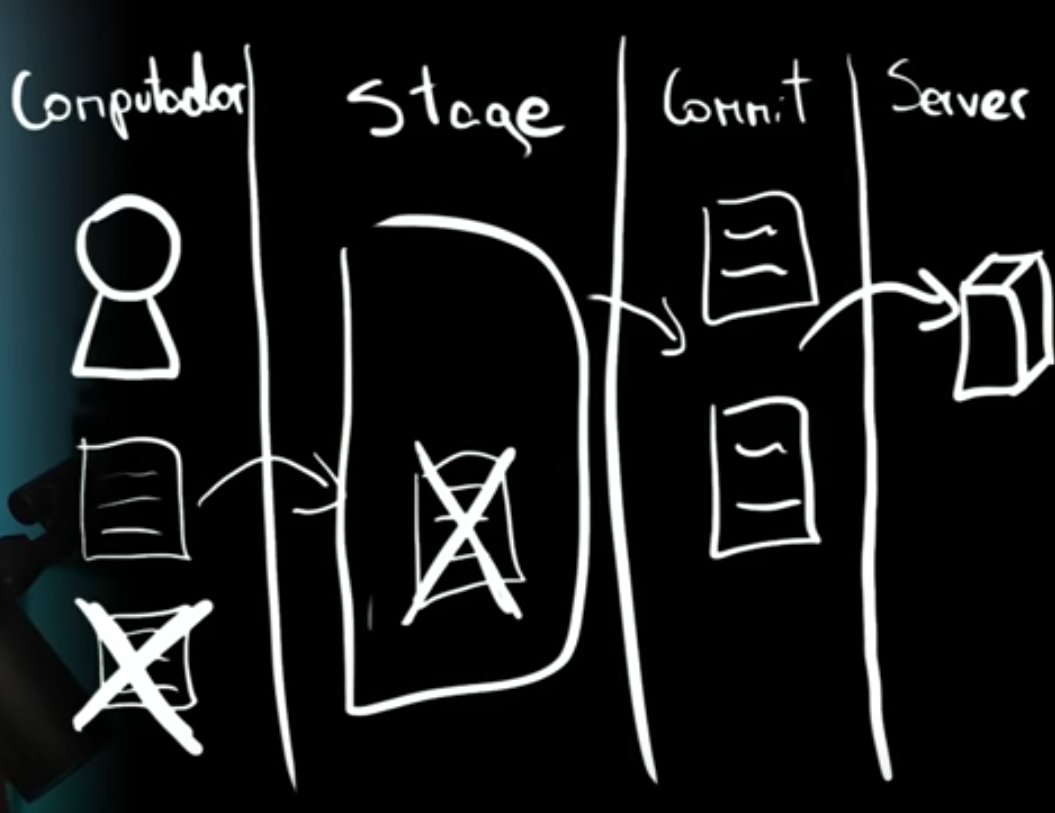 Computador
Stage
Commit
Server